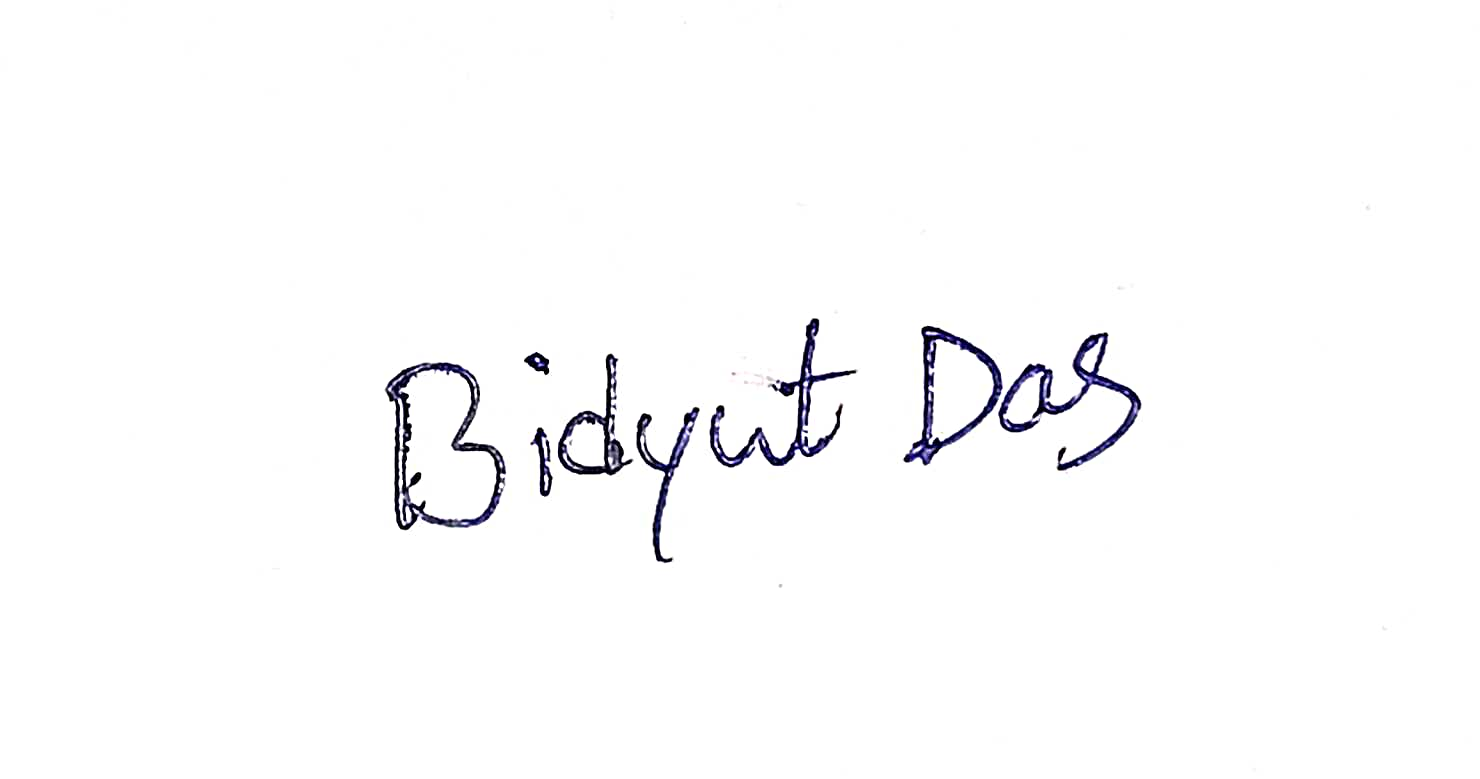 Bidyut Das